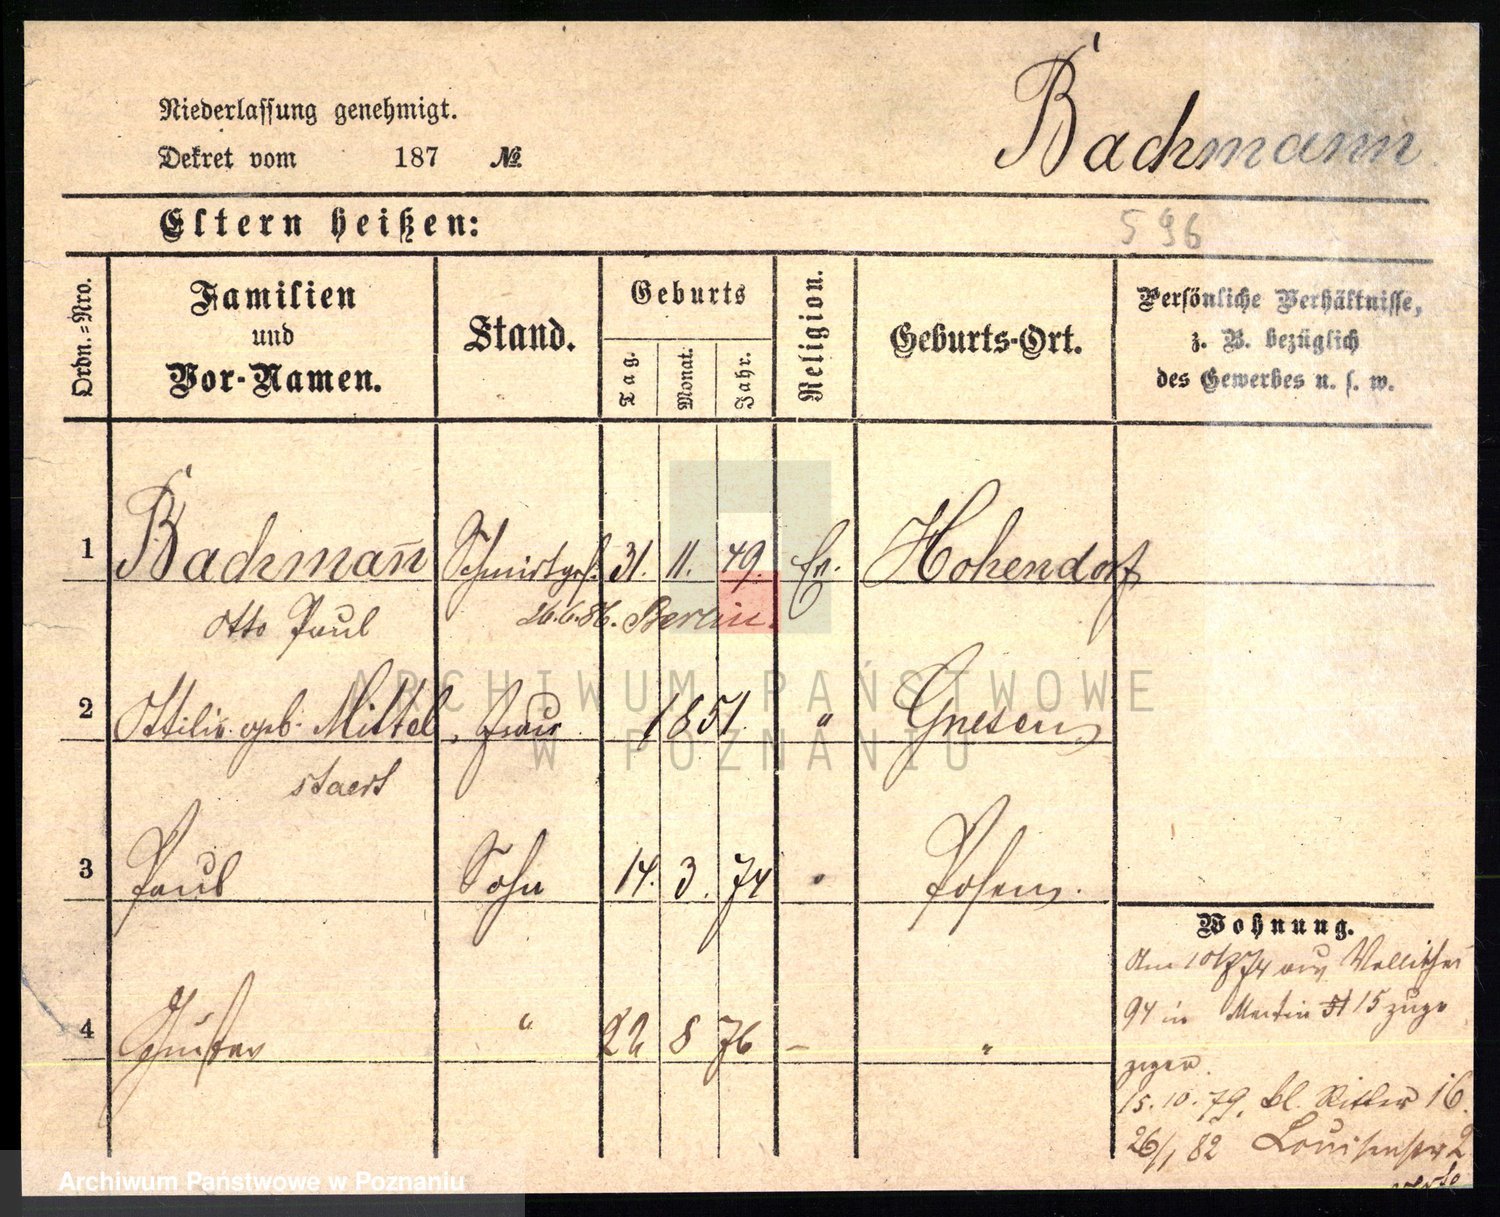 Bachmann
Niederlassung genehmigt.
Dekret vom 187 №
Eltern heißen:
596
Ordn.=Nro.
Familien
und
Vor-Namen.
Stand.
Geburts
Tag.
Monat.
Jahr.
Religion.
Geburts-Ort.
Persönliche Verhältnisse,
z. B. bezüglich
des Gewerbes u. s. w.
1 Bachman̄ Schmidtges. 31. 11. 49. Ev. Hohendorf
Otto Paul 26.6.86. Berlin.
2 Ottilie geb. Mittel Frau 1851. " Gnesen
staedt
3 Paul Sohn 14. 3. 74 " Posen.
4 Gustav " 22 8 76 – "
Wohnung.
Am 10/ 74 aus
94 in Martin 15 zuge
zogen.
15.10.79. kl. Ritter 16.
26/1 82 Louisenstr 2
verte
ARCHIWUM PAŃSTWOWE
W POZNANIU
Archiwum Państwowe w Poznaniu